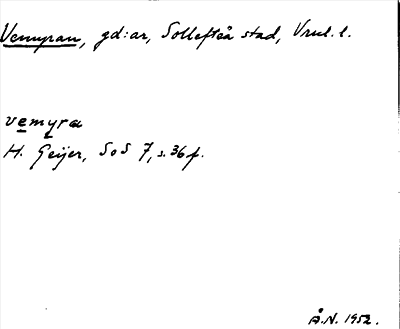 Vemyran, gd:ar, Sollefteå stad, Vrml. l.
vemyra
H. Geijer, SoS 7, s. 36 f.
Å.N. 1952.